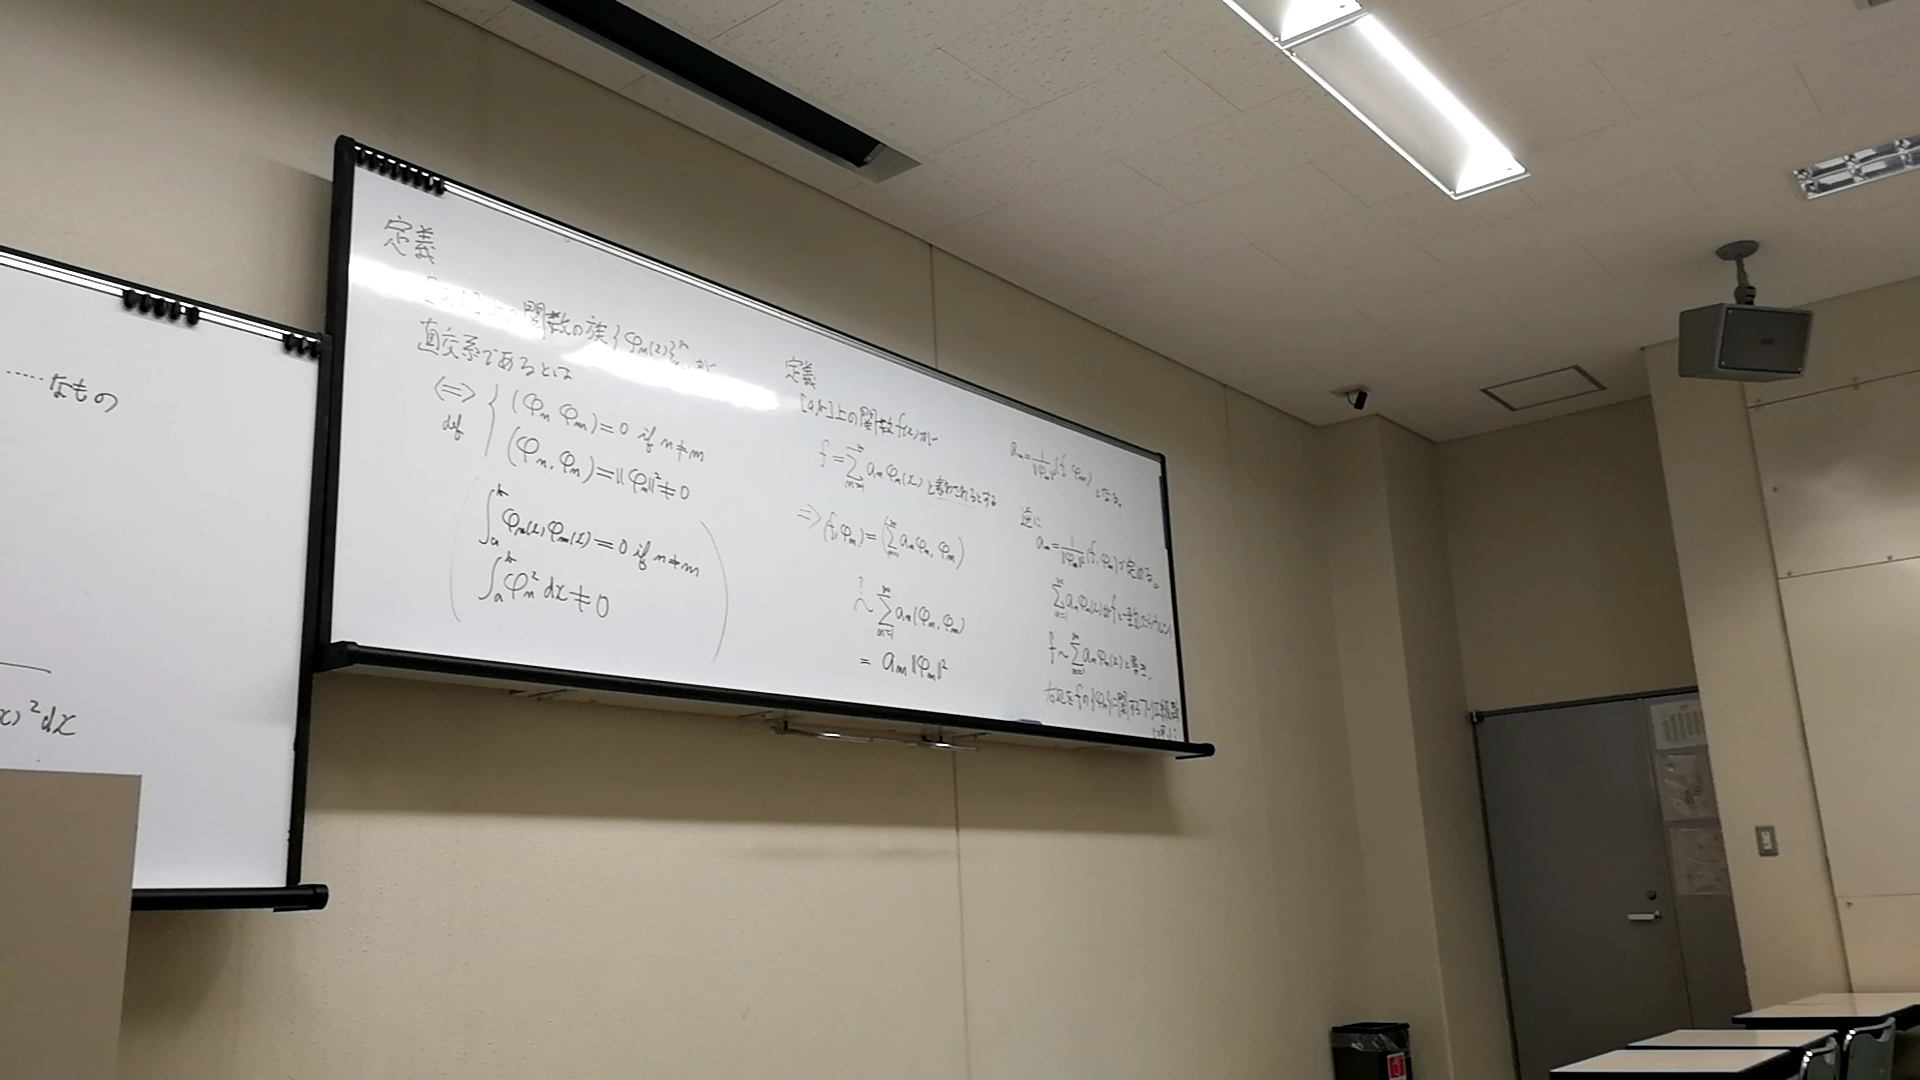 ……なもの
x)²dx
定義
[a,b]上の関数の族{φₙ(x)}ₙ が
直交系であるとは
⇔ def { (φₙ, φₘ)=0 if n≠m
(φₙ, φₙ)=||φₙ||²≠0
∫ₐᵇ φₙ(x)φₘ(x)=0 if n≠m
∫ₐᵇ φₙ² dx≠0
定義
[a,b]上の関数f(x)が
f=∑ₙ₌₁^∞ aₙφₙ(x) と表わされるとする
⇒(f,φₘ)=(∑ₙ₌₁^∞ aₙφₙ, φₘ)
?
~ ∑ₙ₌₁^∞ aₙ(φₙ, φₘ)
= aₘ||φₘ||²
aₘ=1/||φₘ||²(f, φₘ) となる。
逆に
aₙ=1/||φₙ||²(f, φₙ)で定める。
∑ₙ₌₁^∞ aₙφₙ(x)がfと
f~∑ₙ₌₁^∞ aₙφₙ(x)と書き、
右辺をfの{φₙ}に関するフーリエ級数